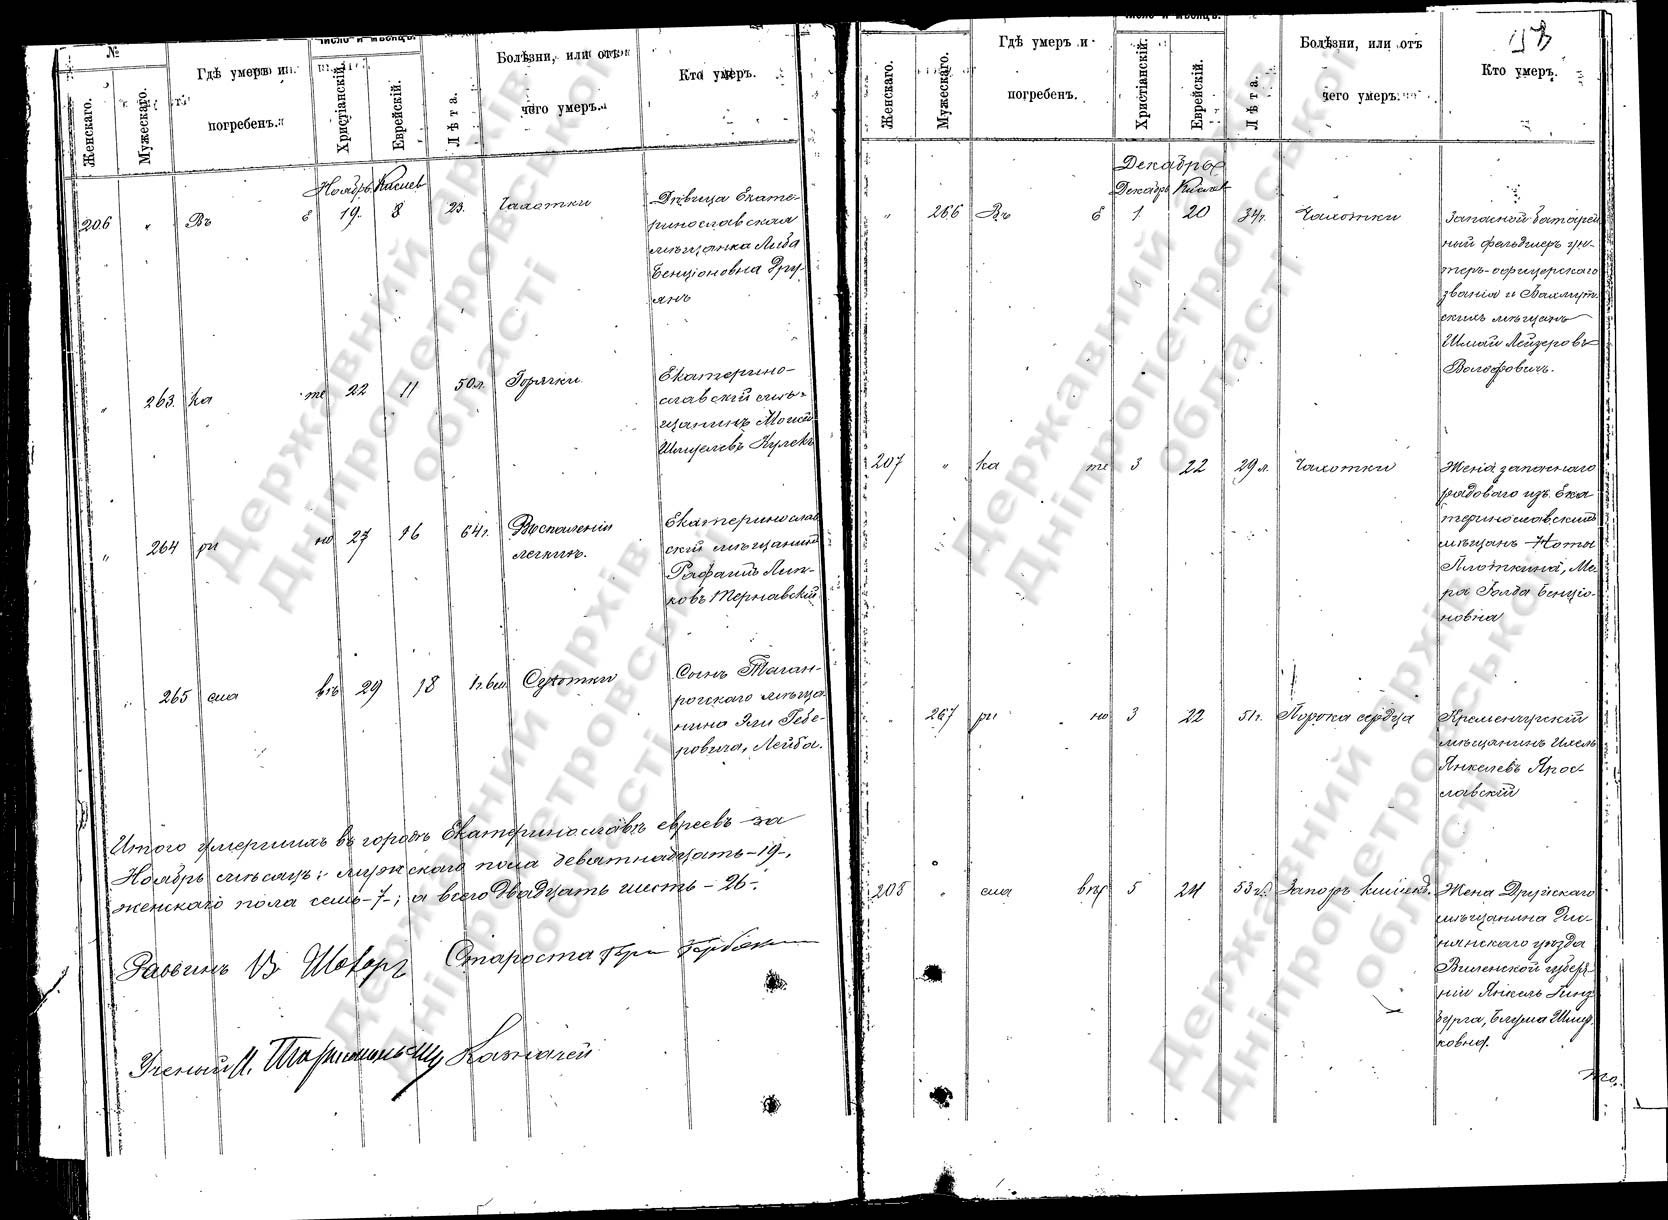 №
Число и мѣсяцъ.
Женскаго.
Мужескаго.
Гдѣ умеръ и
погребенъ.
Христіанскій.
Еврейскій.
Лѣта.
Болѣзни, или отъ
чего умеръ.
Кто умеръ.
Ноябрь Кислев
206 " Въ Е 19. 8 23. Чахотки
Дѣвица Екате-
ринославская
мѣщанка Либа
Бенціоновна Дру-
янъ
" 263. ка те 22 11 50л. Горячки
Екатерино-
славскій мѣ-
щанинъ Моисей
Шмулевъ Кулекъ
" 264 ри но 27 16 64г. Воспаленія
легкихъ.
Екатеринослав
скій мѣщанинъ
Рафаилъ Лип-
ковъ Тернавскій
" 265 сла въ 29 18 1г. 6м Сухотки
Сынъ Таган-
рогскаго мѣща
нина Эли Гебе-
ровича, Лейба.
Итого умершихъ въ городѣ Екатеринославѣ евреевъ за
Ноябрь мѣсяцъ: мужскаго пола девятнадцать-19-,
женскаго пола семь-7-; а всего двадцать шесть-26-.
Раввинъ В Шаворг Староста
Ученый Казначей
Число и мѣсяцъ.
Женскаго.
Мужескаго.
Гдѣ умеръ и
погребенъ.
Христіанскій.
Еврейскій.
Лѣта.
Болѣзни, или отъ
чего умеръ.
Кто умеръ.
Декабрь
Декабрь Кислев
" 266 Въ Е 1 20 34г. Чахотки
Запасной батарей
ный фельдшеръ ун-
теръ-офицерскаго
званія и Бахмут-
скихъ мѣщанъ
Шмай Лейзеровъ
Волофовичъ.
207 " ка те 3 22 29л. Чахотки
Жена запаснаго
рядоваго изъ Ека
теринославскихъ
мѣщанъ Ноты
Плоткина, Мо
ра Голда Бенціо-
новна
" 267 ри но 3 22 51г. Порока сердца
Кременчугскій
мѣщанинъ Ихель
Янкелевъ Яро-
славскій
208 " сла въ 5 24 53г. Запоръ кишекъ.
Жена Друйскаго
мѣщанина Дис-
нянскаго уѣзда
Виленской губер-
ніи Янкель Гинз
бурга, Блума Шмер
ковна.
то.
Державний архів
Дніпропетровської
області
Державний архів
Дніпропетровської
області
Державний архів
Дніпропетровської
області
Державний архів
Дніпропетровської
області